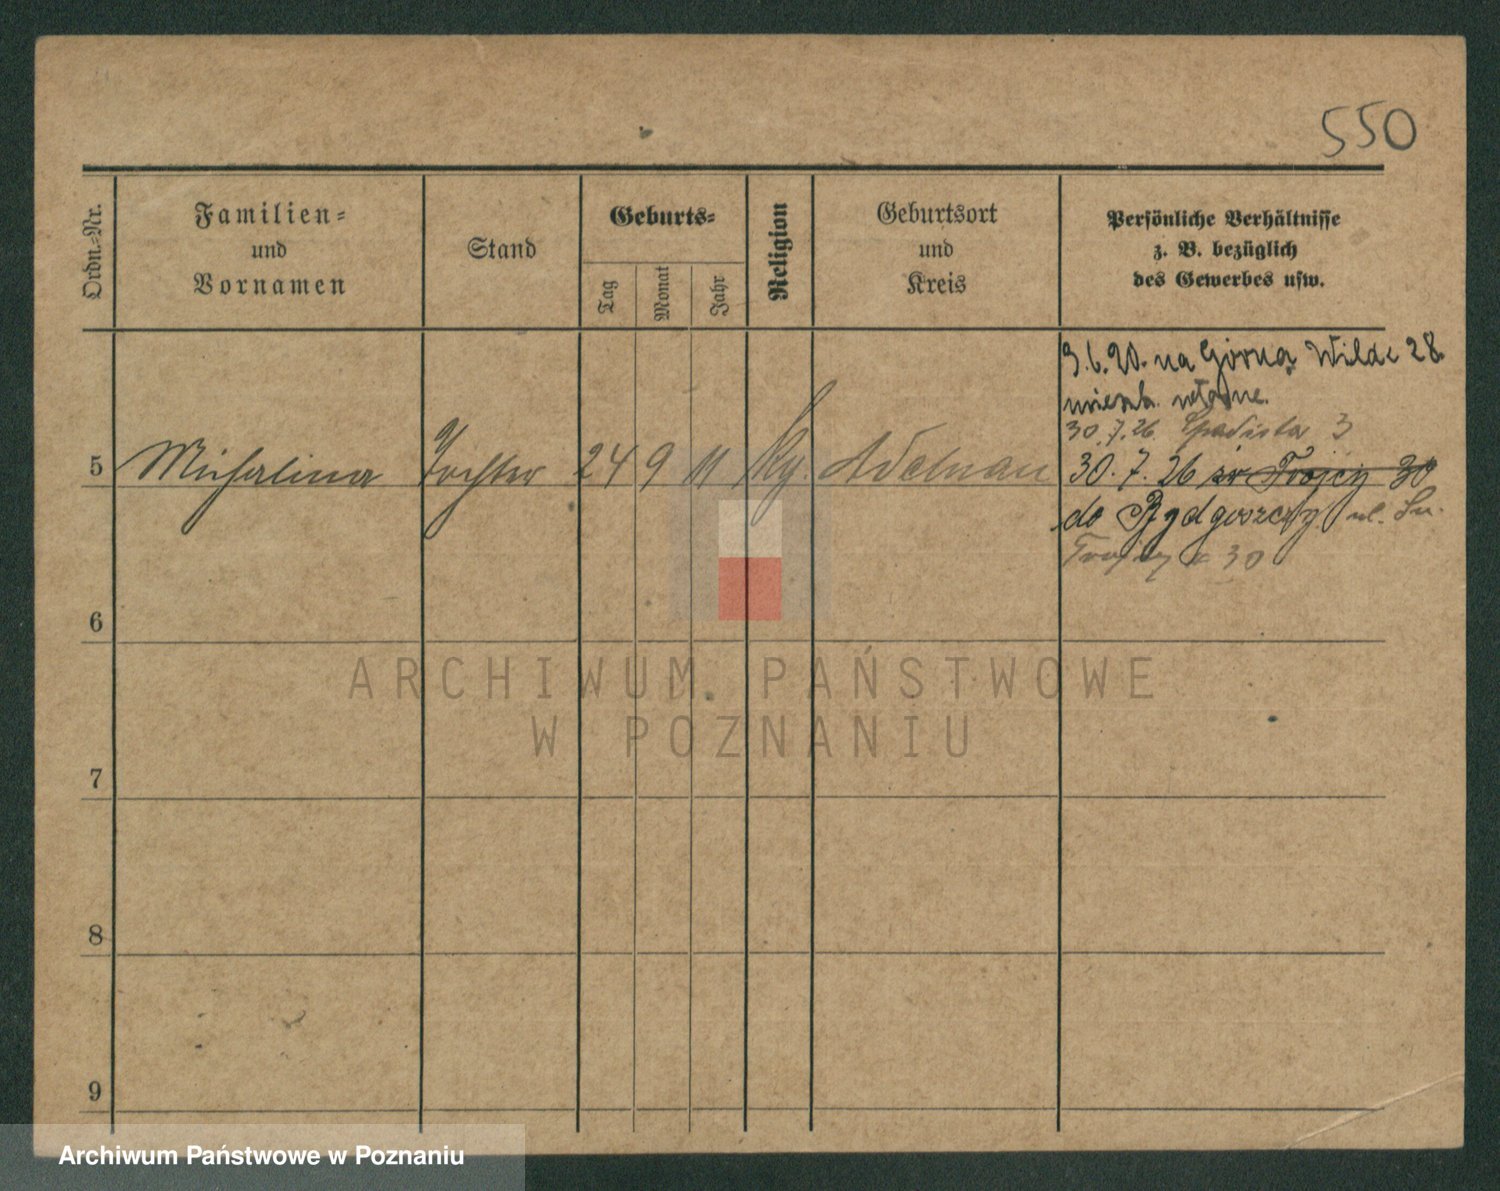 550
Ordn.-Nr.
Familien-
und
Vornamen
Stand
Geburts-
Tag
Monat
Jahr
Religion
Geburtsort
und
Kreis
Persönliche Verhältnisse
z. B. bezüglich
des Gewerbes usw.
9.6.20. na Górną Wildę 28.
mieszk. własne.
30.7.26 3
5 Michalina Tochter 24 9 11 Kg. Adelnau
30.7.26 św Trojcy 30
do Bydgoszczy ul. Św.
Trojcy 30
6
7
8
9
ARCHIWUM PAŃSTWOWE
W POZNANIU
Archiwum Państwowe w Poznaniu